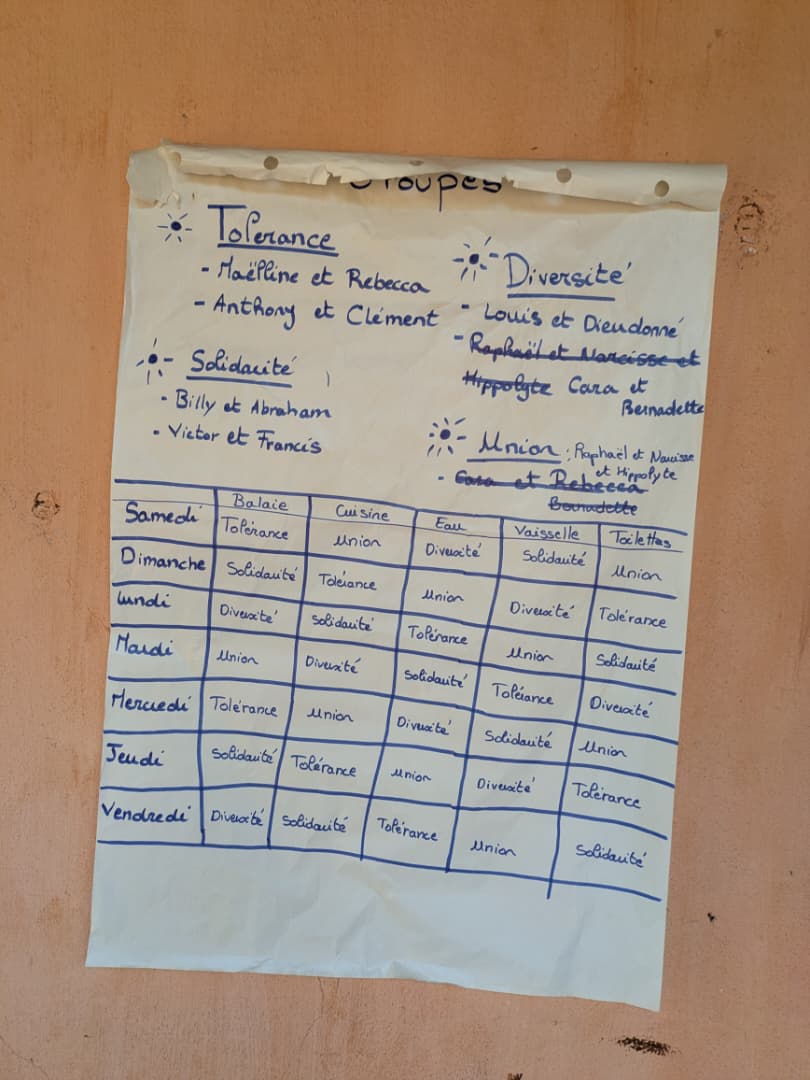 Groupes
Tolérance
- Maëlline et Rebecca
- Anthony et Clément
Solidarité
- Billy et Abraham
- Victor et Francis
Diversité
- Louis et Dieudonné
- Raphaël et Narcisse et
Hippolyte Cara et
Bernadette
Union : Raphaël et Narcisse
et Hippolyte
- Cara et Rebecca
Bernadette
Balaie Cuisine Eau Vaisselle Toilettes
Samedi Tolérance Union Diversité Solidarité Union
Dimanche Solidarité Tolérance Union Diversité Tolérance
Lundi Diversité Solidarité Tolérance Union Solidarité
Mardi Union Diversité Solidarité Tolérance Diversité
Mercredi Tolérance Union Diversité Solidarité Union
Jeudi Solidarité Tolérance Union Diversité Tolérance
Vendredi Diversité Solidarité Tolérance Union Solidarité